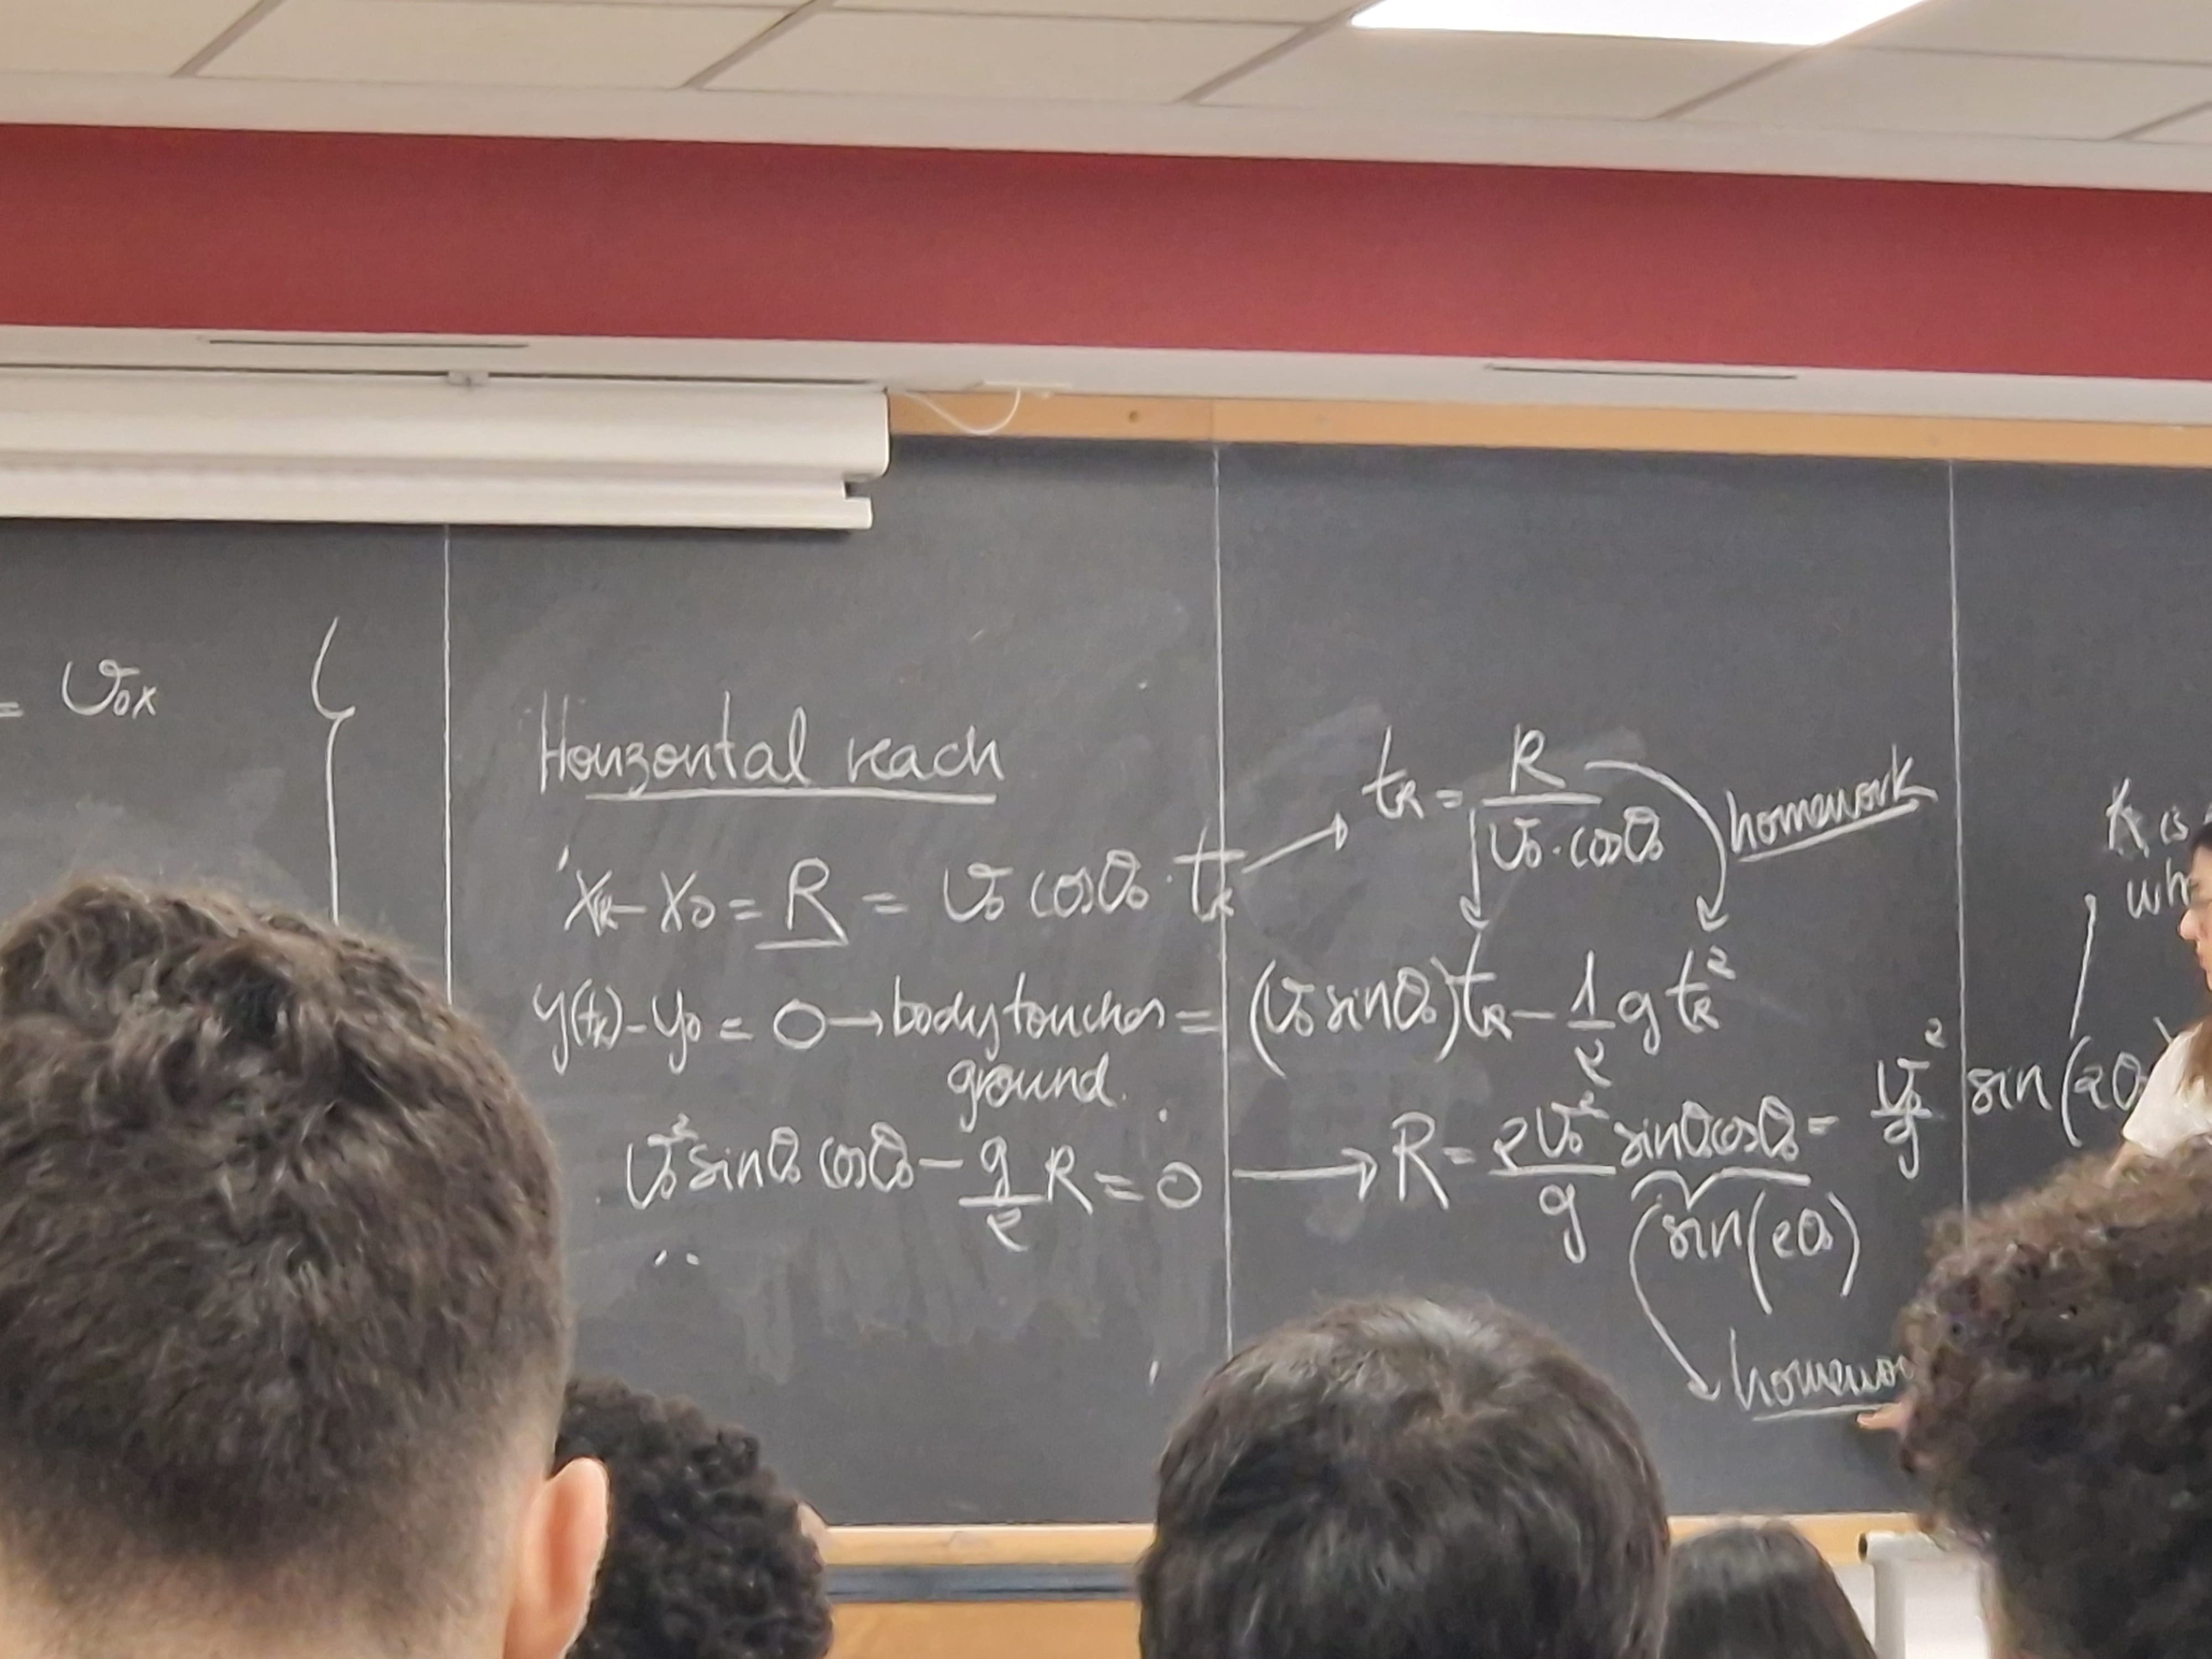 = v₀ₓ
Horizontal reach
x_R - x₀ = R = v₀ cosθ₀ · t_R → t_R = R / (v₀ · cosθ₀) homework
y(t_R) - y₀ = 0 → body touches ground. = (v₀ sinθ₀) t_R - 1/2 g t_R²
v₀² sinθ₀ cosθ₀ - g/2 R = 0 → R = 2v₀²/g sinθ₀ cosθ₀ = v₀²/g sin(2θ₀
sin(2θ₀)
is